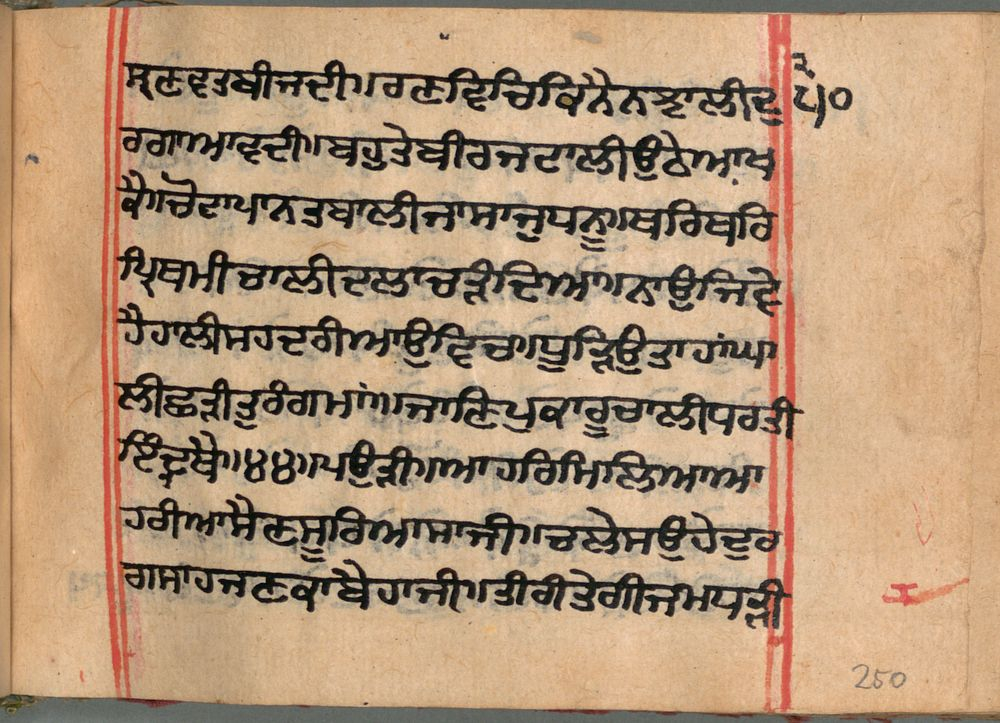 ਸ੍ਰਣਵਤਬੀਜਦੀ॥ਰਣਵਿਚਿਕਿਨੈਨਝਾਲੀਦੁ ੨੫੦
ਰਗਾਆਵਦੀ॥ਬਹੁਤੇਬੀਰਜਟਾਲੀਉਠੇਆਖ
ਕੈ॥ਚੋਟਾਪਾਨਤਬਾਲੀਜਾਸਾਜੁਧਨੂ॥ਥਰਿਥਰਿ
ਪ੍ਰਿਥਮੀਚਾਲੀਦਲਾਚੜੰਦਿਆ॥ਨਾਉਜਿਵੇ
ਹੈਹਾਲੀਸਹਦਰੀਆਉਵਿਚ॥ਧੂੜਿਉਤਾਹਾਂਘਾ
ਲੀਛੜੀਤੁਰੰਗਮਾਂ॥ਜਾਣਿਪੁਕਾਰੂਚਾਲੀਧਰਤੀ
ਇੰਦ੍ਰਥੈ॥੪੪॥ਪਉੜੀ॥ਆਹਰਿਮਿਲਿਆਆ
ਹਰੀਆਸੈਣਸੂਰਿਆਸਾਜੀ॥ਚਲੇਸਉਹੇਦੁਰ
ਗਸਾਹਜਣਕਾਬੈਹਾਜੀ॥ਤੀਰੀਤੇਗੀਜਮਧੜੀ
250